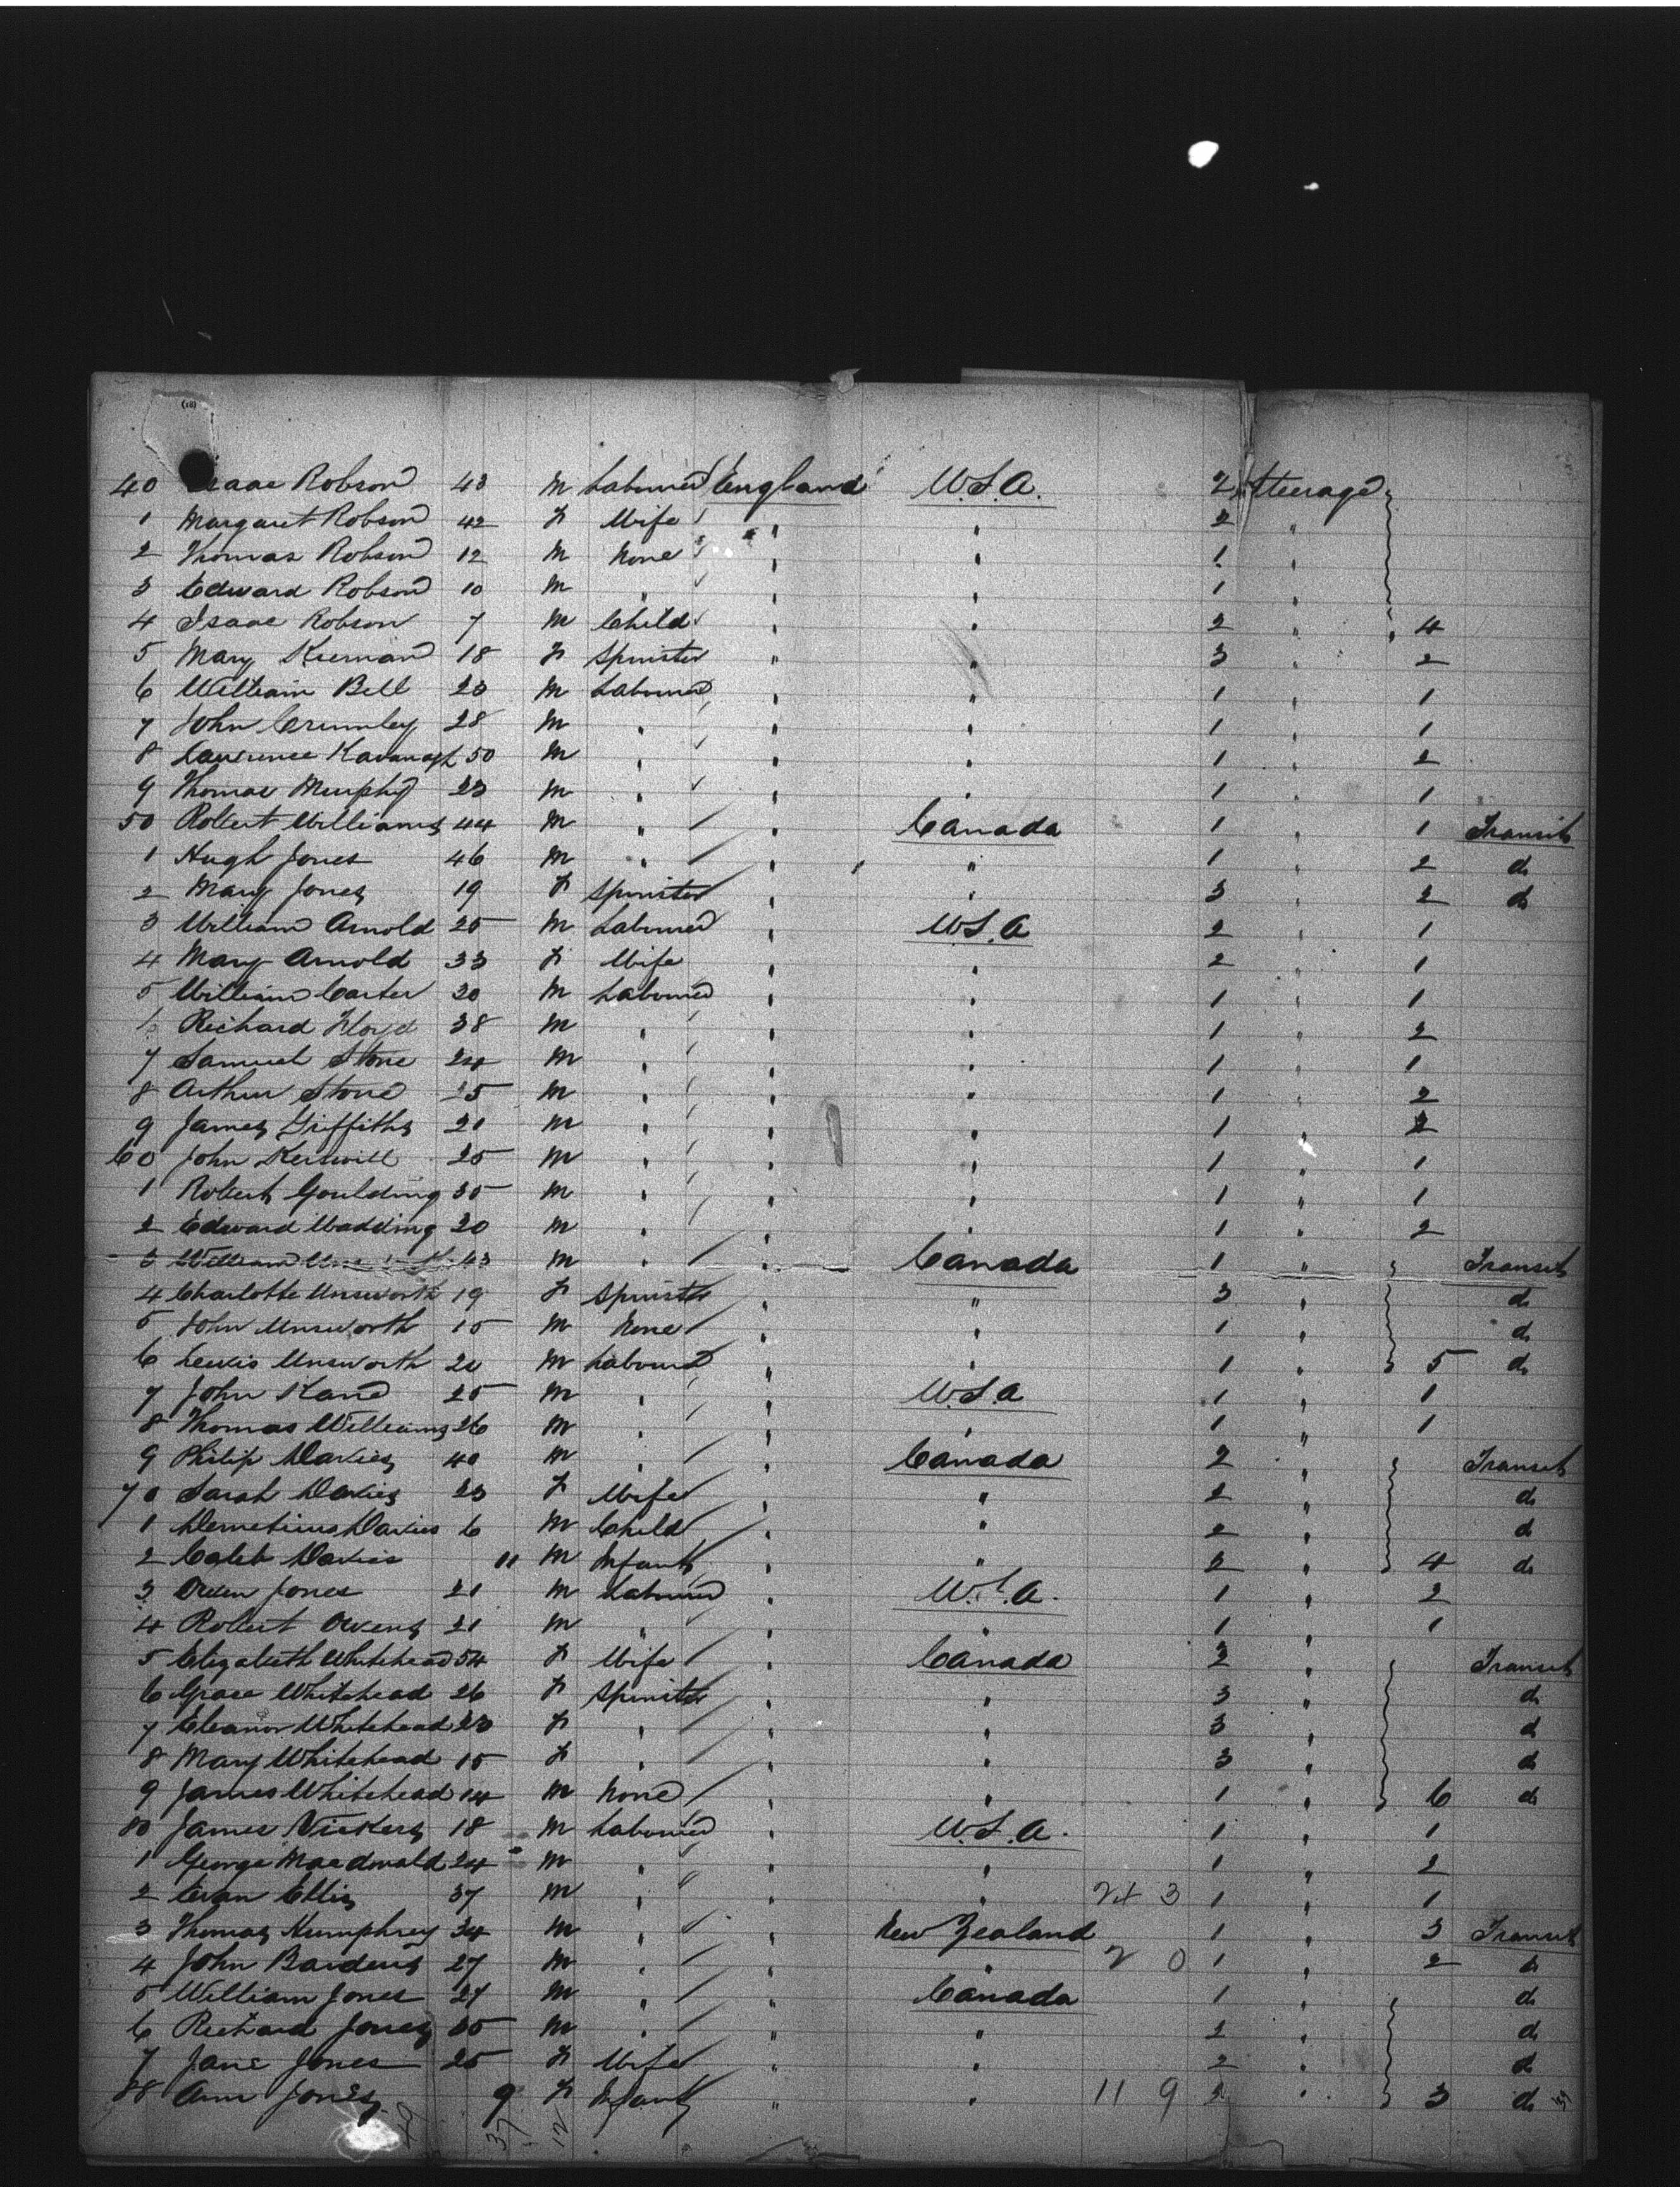 (18)
40 Isaac Robson 43 M Labourer England U.S.A. 2 Steerage
1 Margaret Robson 42 F Wife " " 2 "
2 Thomas Robson 12 M None " " 1 "
3 Edward Robson 10 M " " " 1 "
4 Isaac Robson 7 M Child " " 2 " 4
5 Mary Kiernan 18 F Spinster " " 3 " 2
6 William Bell 23 M Labourer " " 1 " 1
7 John Crumley 28 M " " " 1 " 1
8 Lawrence Kavanagh 50 M " " " 1 " 2
9 Thomas Murphy 23 M " " " 1 " 1
50 Robert Williams 44 M " " Canada 1 " 1 Transit
1 Hugh Jones 46 M " " " 1 " 2 do
2 Mary Jones 19 F Spinster " " 3 " 2 do
3 William Arnold 25 M Labourer " U.S.A 2 " 1
4 Mary Arnold 33 F Wife " " 2 " 1
5 William Carter 30 M Labourer " " 1 " 1
6 Richard Floyd 38 M " " " 1 " 2
7 Samuel Stone 24 M " " " 1 " 1
8 Arthur Stone 25 M " " " 1 " 2
9 James Griffiths 21 M " " " 1 " 2
60 John Kerswill 25 M " " " 1 " 1
1 Robert Goulding 35 M " " " 1 " 1
2 Edward Madding 20 M " " " 1 " 2
3 William 43 M " " Canada 1 " Transit
4 Charlotte Unsworth 19 F Spinster " " 3 " do
5 John Unsworth 15 M None " " 1 " do
6 Lewis Unsworth 20 M Labourer " " 1 " 5 do
7 John Kane 25 M " " U.S.A 1 " 1
8 Thomas Williams 26 M " " " 1 " 1
9 Philip Davies 40 M " " Canada 2 " Transit
70 Sarah Davies 23 F Wife " " 2 " do
1 Demetrius Davies 6 M Child " " 2 " do
2 Caleb Davies 11 M Infant " " 2 " 4 do
3 Owen Jones 21 M Labourer " U.S.A. 1 " 2
4 Robert Owens 21 M " " " 1 " 1
5 Elizabeth Whitehead 54 F Wife " Canada 2 " Transit
6 Grace Whitehead 26 F Spinster " " 3 " do
7 Eleanor Whitehead 23 F " " " 3 " do
8 Mary Whitehead 15 F " " " 3 " do
9 James Whitehead 14 M None " " 1 " 6 do
80 James Vickers 18 M Labourer " U.S.A. 1 " 1
1 George Macdonald 24 M " " " 1 " 2
2 Evan Ellis 37 M " " " 24 3 1 " 1
3 Thomas Humphrey 34 M " " New Zealand 1 " 3 Transit
4 John Bardens 27 M " " " 2 0 1 " 2 do
5 William Jones 27 M " " Canada 1 " do
6 Richard Jones 35 M " " " 2 " do
7 Jane Jones 25 F Wife " " 2 " do
88 Ann Jones 9 F Infant " " 11 9 2 " 3 do
49 37 12